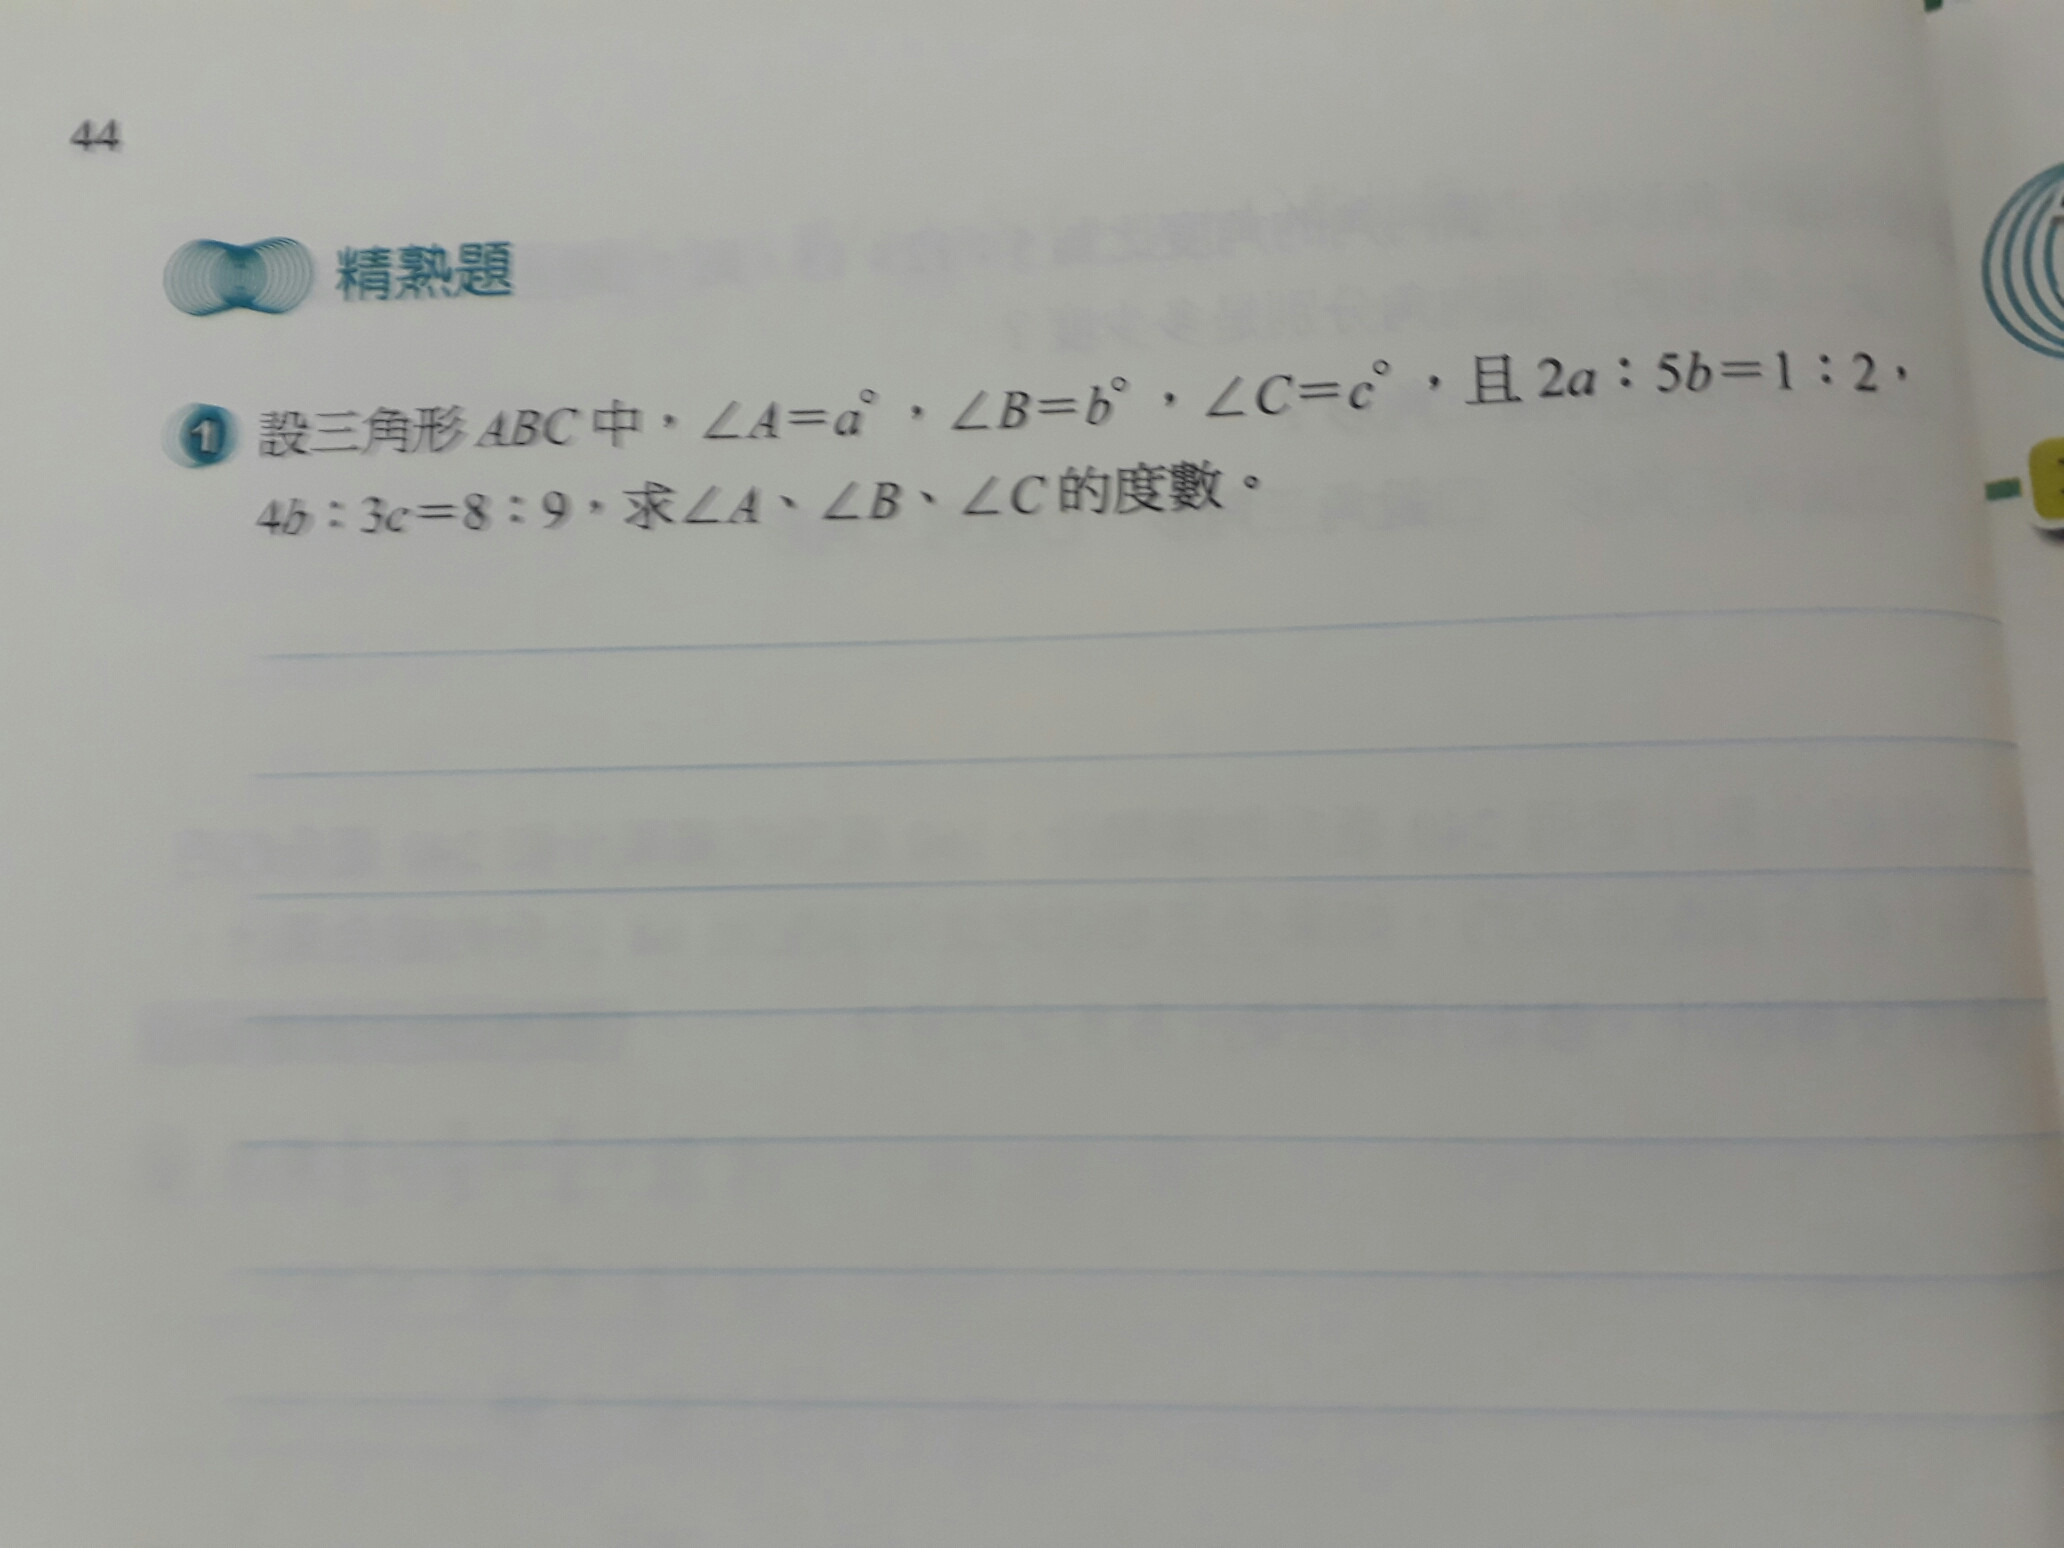 44
精熟題
1 設三角形 ABC 中，∠A=a°，∠B=b°，∠C=c°，且 2a：5b=1：2，
4b：3c=8：9，求∠A、∠B、∠C 的度數。